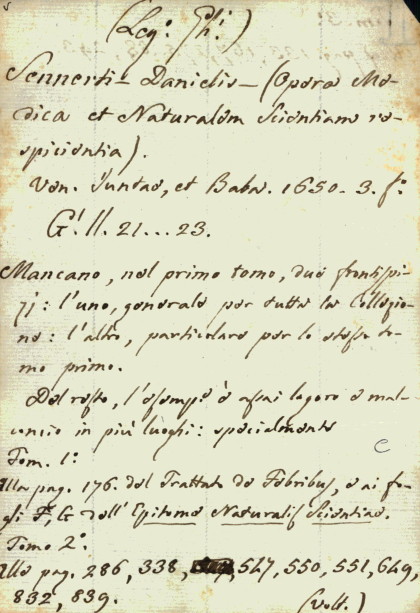 (Leg.º Ph.i)
Sennerti- Danielis- (Opera Me-
dica et Naturalem Scientiam re-
spicientia).
Ven. Juntae, et Baba. 1650. 3. fº
G. II. 21...23.
Mancano, nel primo tomo, due frontispi-
zj: l'uno, generale per tutta la Collezio-
ne: l'altro, particolare per lo stesso to-
mo primo.
Del resto, l'esemp.e è assai lacero e mal-
concio in più luoghi: specialmente
Tom. 1º:
Alla pag. 176. del Trattato de Febribus, e ai fo-
gli F, G dell' Epitome Naturalis Scientiae.
Tomo 2º:
Alle pag. 286, 338, 547, 550, 551, 649,
832, 839.
(volt.)